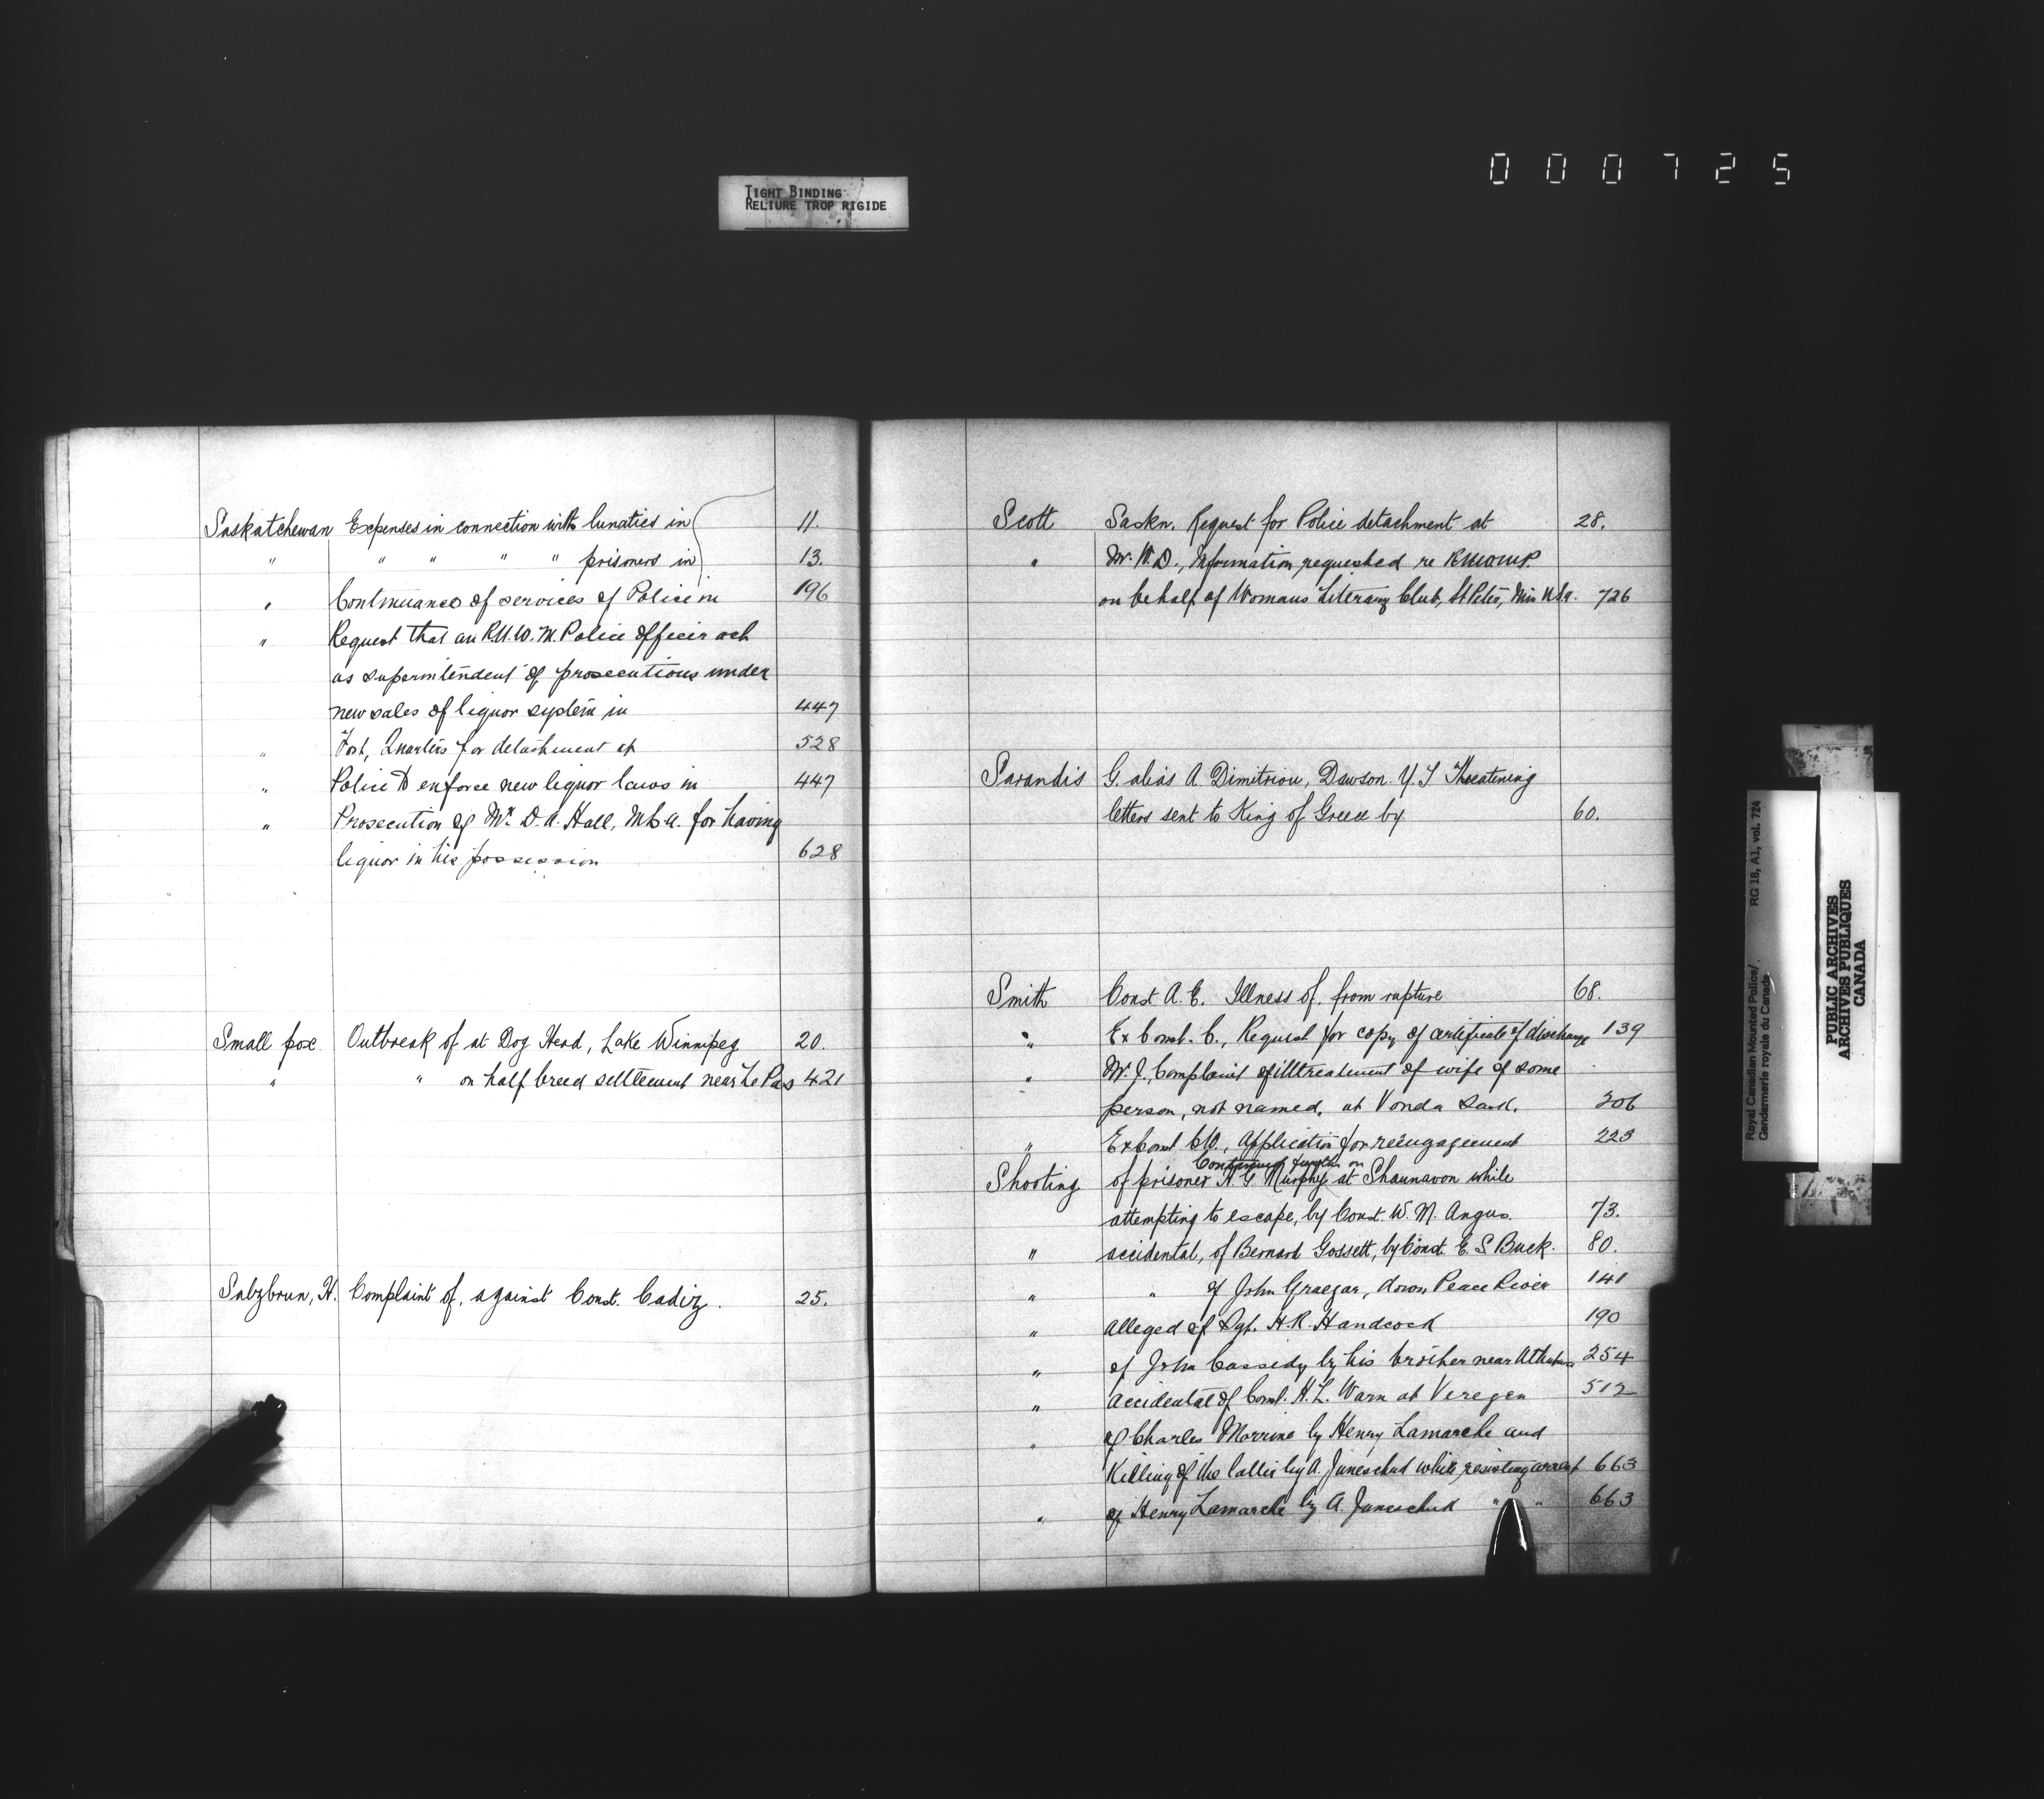 000725
TIGHT BINDING
RELIURE TROP RIGIDE
Saskatchewan Expenses in connection with lunatics in 11.
" " " " " prisoners in 13.
" Continuance of services of Police in 196
" Request that an R.N.W.M. Police Officer act
as superintendent of prosecutions under
new sales of liquor system in 447
" Fort, Quarters for detachment at 528
" Police to enforce new liquor laws in 447
" Prosecution of Mr. D.A. Hall, M.L.A. for having
liquor in his possession 628
Small pox Outbreak of at Dog Head, Lake Winnipeg 20.
" " on half breed settlement near Le Pas 421
Salzbrun, H. Complaint of, against Const. Cadiz. 25.
Scott Saskn. Request for Police detachment at 28.
" Mr. W.D., Information requested re RNWMP.
on behalf of Womans Literary Club, St Peter, Min USA. 726
Sarandis G. alias A. Dimitriou, Dawson. Y.T Threatening
letters sent to King of Greece by 60.
Smith Const. A.E. Illness of, from rupture 68.
" Ex Const. C., Request for copy of certificate of discharge 139
" W.J., Complaint of illtreatment of wife of some
person, not named, at Vonda Sask. 206
" Ex Const CW., Application for reengagement 223
Continued further on
Shooting of prisoner H.G. Murphy at Shaunavon while
attempting to escape, by Const. W.N. Angus. 73.
" accidental, of Bernard Gossett, by Const. E.S Buck. 80.
" " of John Graegar, down Peace River 141
" Alleged of Sgt. H.R. Handcock 190
" of John Cassidy by his brother near Athabasca 254
" Accidental of Const. H.L. Warn at Veregen 512
" of Charles Morrine by Henry Lamarche and
Killing of the latter by A. Juneschuk while resisting arrest 663
" of Henry Lamarche by A. Juneschuk " " 663
Royal Canadian Mounted Police/
Gendarmerie royale du Canada
RG 18, A1, vol. 724
PUBLIC ARCHIVES
ARCHIVES PUBLIQUES
CANADA